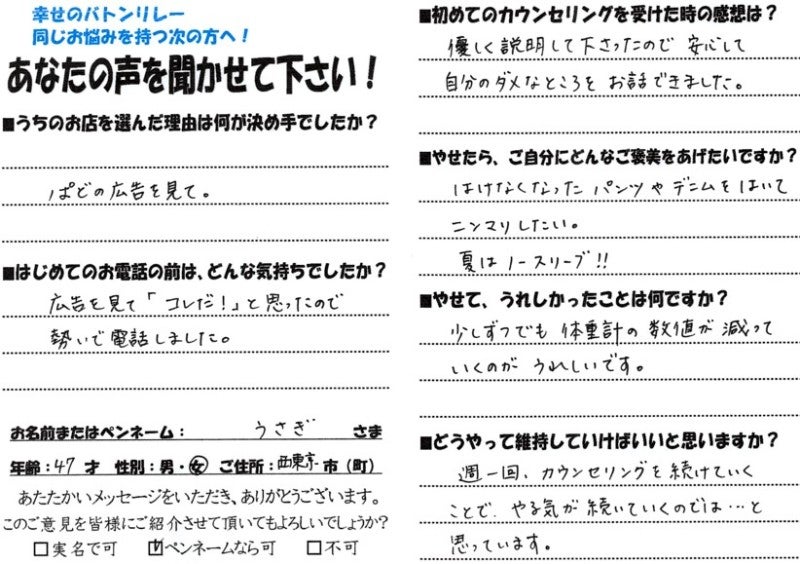 幸せのバトンリレー
同じお悩みを持つ次の方へ！
あなたの声を聞かせて下さい！
■うちのお店を選んだ理由は何が決め手でしたか？
ぱどの広告を見て。
■はじめてのお電話の前は、どんな気持ちでしたか？
広告を見て「コレだ！」と思ったので
勢いで電話しました。
お名前またはペンネーム： うさぎ さま
年齢：47才 性別：男・女 ご住所：西東京市（町）
あたたかいメッセージをいただき、ありがとうございます。
このご意見を皆様にご紹介させて頂いてもよろしいでしょうか？
□実名で可 ☑ペンネームなら可 □不可
■初めてのカウンセリングを受けた時の感想は？
優しく説明して下さったので安心して
自分のダメなところをお話できました。
■やせたら、ご自分にどんなご褒美をあげたいですか？
はけなくなったパンツやデニムをはいて
ニンマリしたい。
夏はノースリーブ!!
■やせて、うれしかったことは何ですか？
少しずつでも体重計の数値が減って
いくのがうれしいです。
■どうやって維持していけばいいと思いますか？
週一回、カウンセリングを続けていく
ことで、やる気が続いていくのでは…と
思っています。